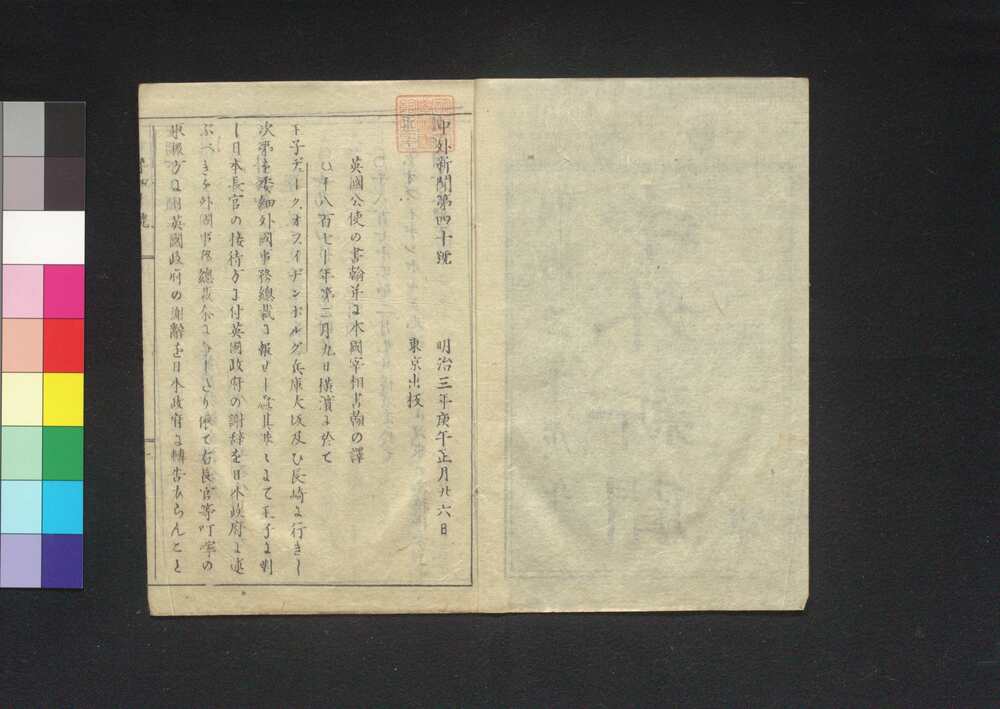 中外新聞第四十號　明治三年庚午正月廿六日
東京出板
英國公使の書翰并に本國宰相書翰の譯
千八百七十年第二月九日橫濱に於て
王子デークオフイヂンボルグ兵庫大坂及ひ長崎に行きし
次第を委細外國事務總裁に報せし 其 よて王子に對
し日本長官の接待方に付英國政府の謝辞を日本政府に述
ぶべき 外國事務總裁 依て右長官等叮寧の
取扱方に付英國政府の謝辭を日本政府に轉告 んこと